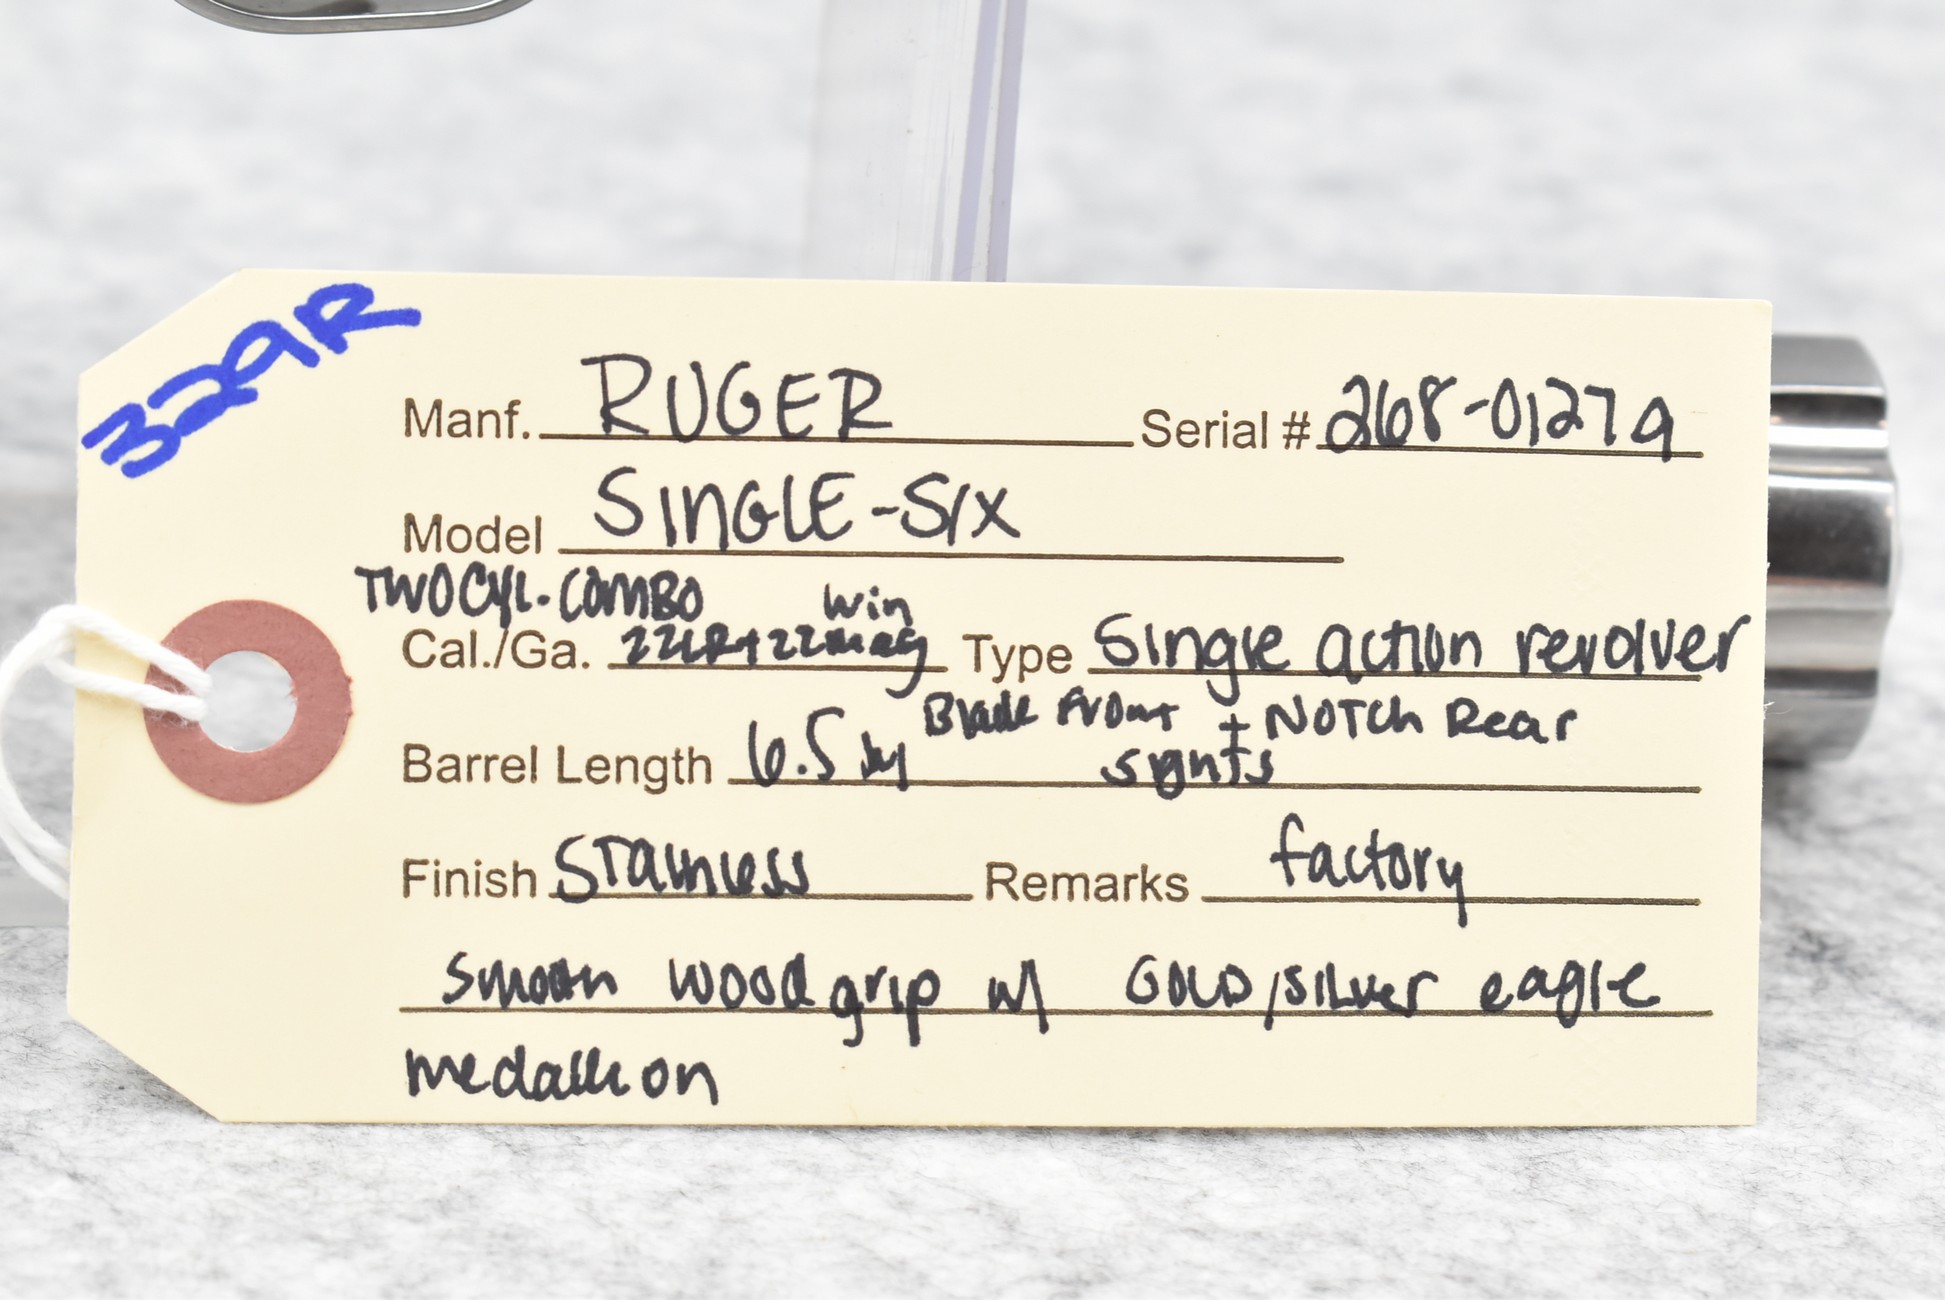 329R
Manf. RUGER Serial # 268-01279
Model SINGLE-SIX
TWO CYL. COMBO win
Cal./Ga. 22LR+22mag Type Single action revolver
Blade Front + NOTCH Rear
Barrel Length 6.5 in sights
Finish Stainless Remarks factory
smooth wood grip w/ GOLD/SILVER eagle
medallion